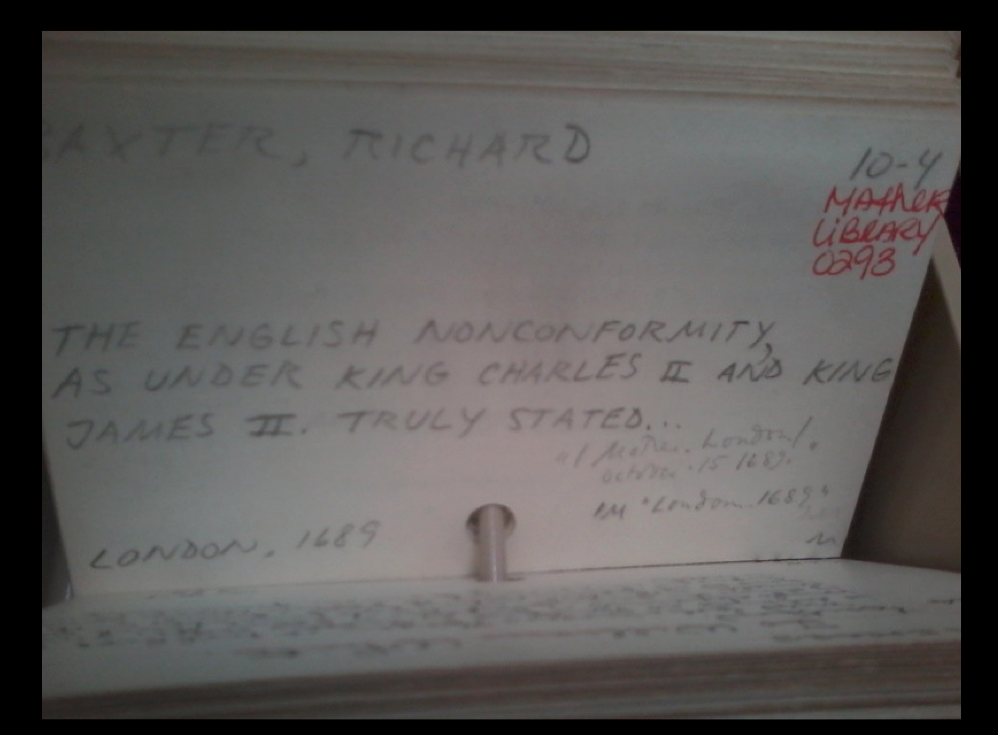 BAXTER, RICHARD
10-4
MAthER
LiBRARY
0293
THE ENGLISH NONCONFORMITY,
AS UNDER KING CHARLES II AND KING
JAMES II. TRULY STATED...
Mather. London
October. 15 1689.
"London. 1689"
LONDON, 1689